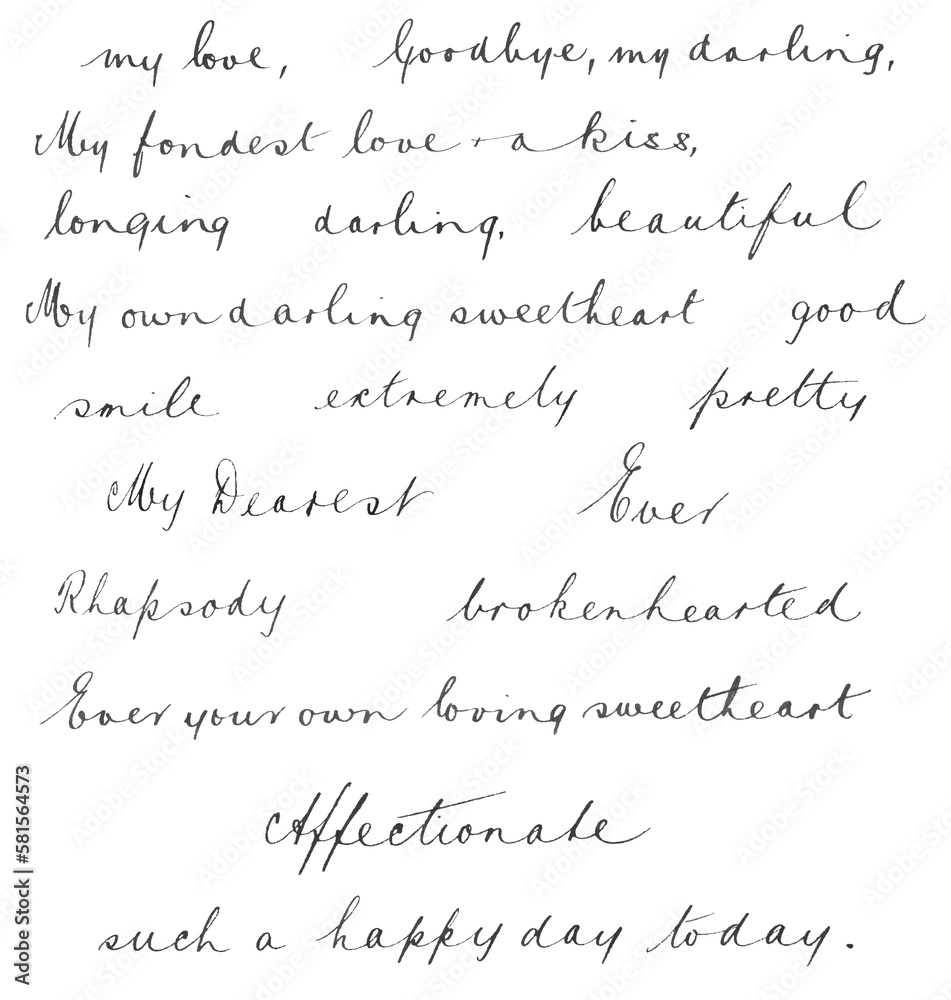 my love, Goodbye, my darling,
My fondest love + a kiss,
longing darling, beautiful
My own darling sweetheart good
smile extremely pretty
My Dearest Ever
Rhapsody brokenhearted
Ever your own loving sweetheart
Affectionate
such a happy day today.
Adobe Stock | #581564573